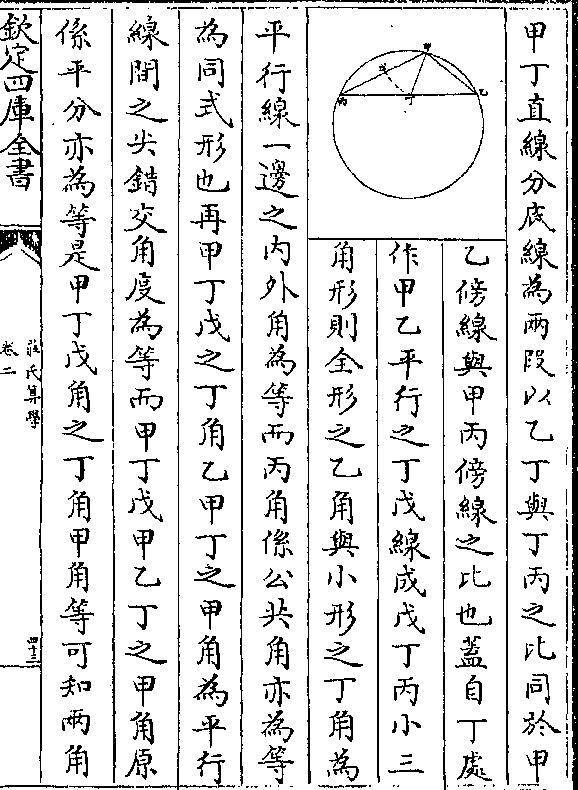 甲丁直線分底線為兩段以乙丁與丁丙之比同於甲
甲
乙
丙
丁
戊
乙傍線與甲丙傍線之比也蓋自丁處
作甲乙平行之丁戊線成戊丁丙小三
角形則全形之乙角與小形之丁角為
平行線一邊之内外角為等而丙角係公共角亦為等
為同式形也再甲丁戊之丁角乙甲丁之甲角為平行
線間之尖錯交角度為等而甲丁戊甲乙丁之甲角原
係平分亦為等是甲丁戊角之丁角甲角等可知兩角
欽定四庫全書
莊氏算學
卷二
四十三